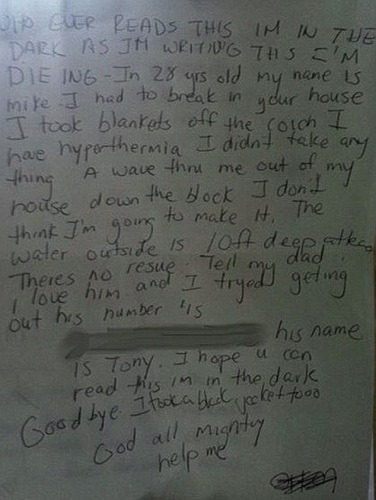 WHO EVER READS THIS IM IN THE
DARK AS IM WRITING THS I'M
DIE ING - In 28 yrs old my name is
mike I had to break in your house
I took blankets off the coich I
hae hyperthermia I didnt take any
thing A wave thru me out of my
house down the block I don't
think I'm going to make it. The
water outside is 10ft deep atleas
Theres no resue. Tell my dad
I love him and I tryed geting
out his number is
his name
is Tony. I hope u can
read this im in the dark
Goodbye. I took a black jacket tooo
God all mighty
help me